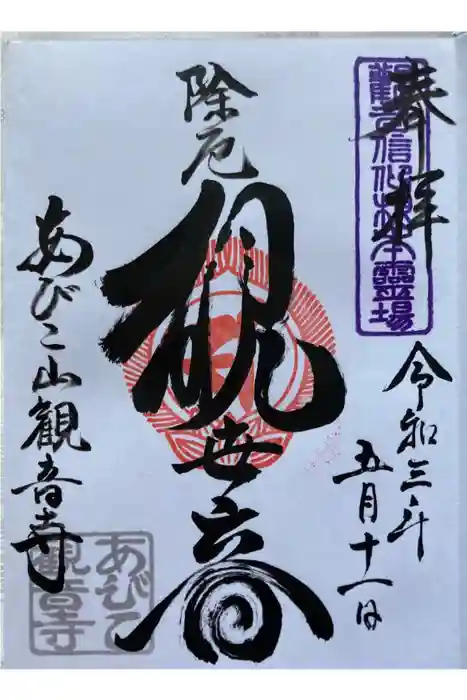 奉拝
観音信仰根本霊場
令和三年
五月十一日
除厄
観世音
あびこ山観音寺
あびこ
観音寺